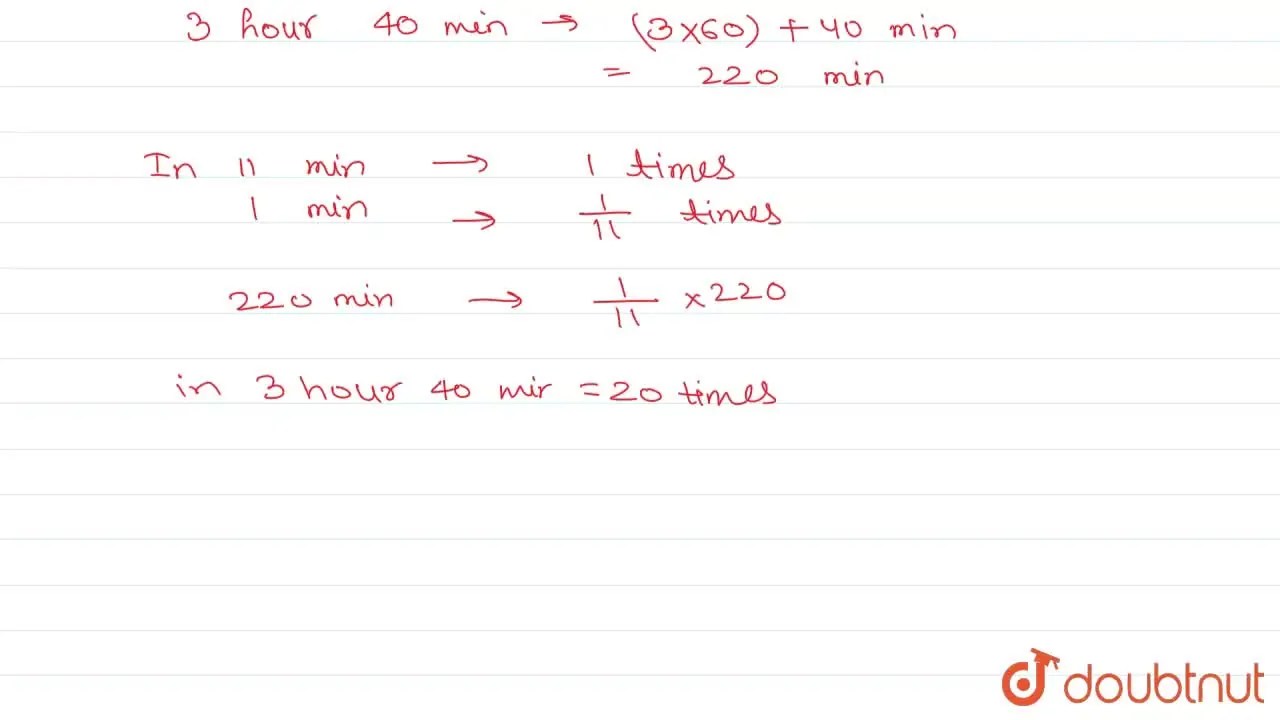 3 hour 40 min → (3×60) + 40 min
= 220 min
In 11 min → 1 times
1 min → 1/11 times
220 min → 1/11 × 220
in 3 hour 40 min = 20 times
doubtnut